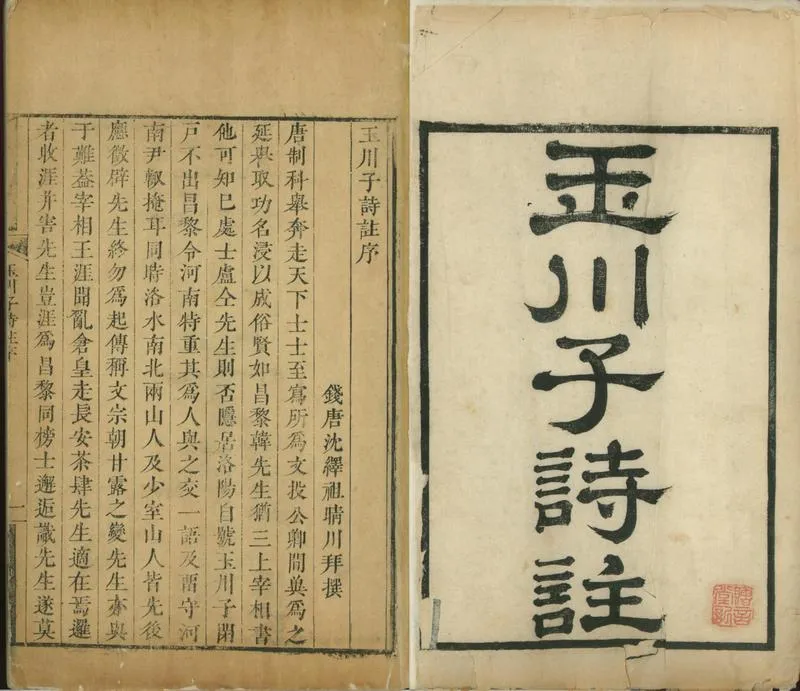 玉川子詩註
玉川子詩註序
錢唐沈繹祖晴川拜撰
唐制科舉奔走天下士士至寫所爲文投公卿間兾爲之
延譽取功名浸以成俗賢如昌黎韓先生猶三上宰相書
他可知已處士盧仝先生則否隱居洛陽自號玉川子閉
戸不出昌黎令河南特重其爲人與之交一語及畱守河
南尹輙掩耳同時洛水南北兩山人及少室山人皆先後
應徵辟先生終勿爲起傳稱文宗朝甘露之變先生亦與
于難葢宰相王涯聞亂倉皇走長安茶肆先生適在焉邏
者收涯并害先生豈涯爲昌黎同榜士邂逅識先生遂莫
玉川子詩註序
一